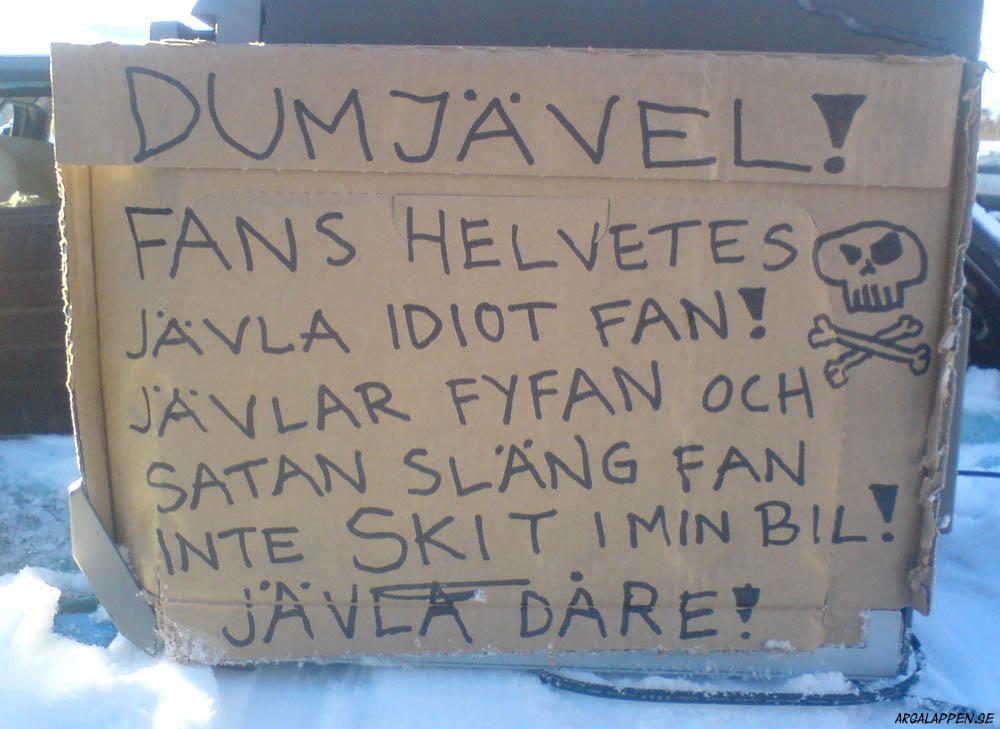 DUMJÄVEL!
FANS HELVETES
JÄVLA IDIOT FAN!
JÄVLAR FYFAN OCH
SATAN SLÄNG FAN
INTE SKIT I MIN BIL!
JÄVLA DÅRE!
ARGALAPPEN.SE